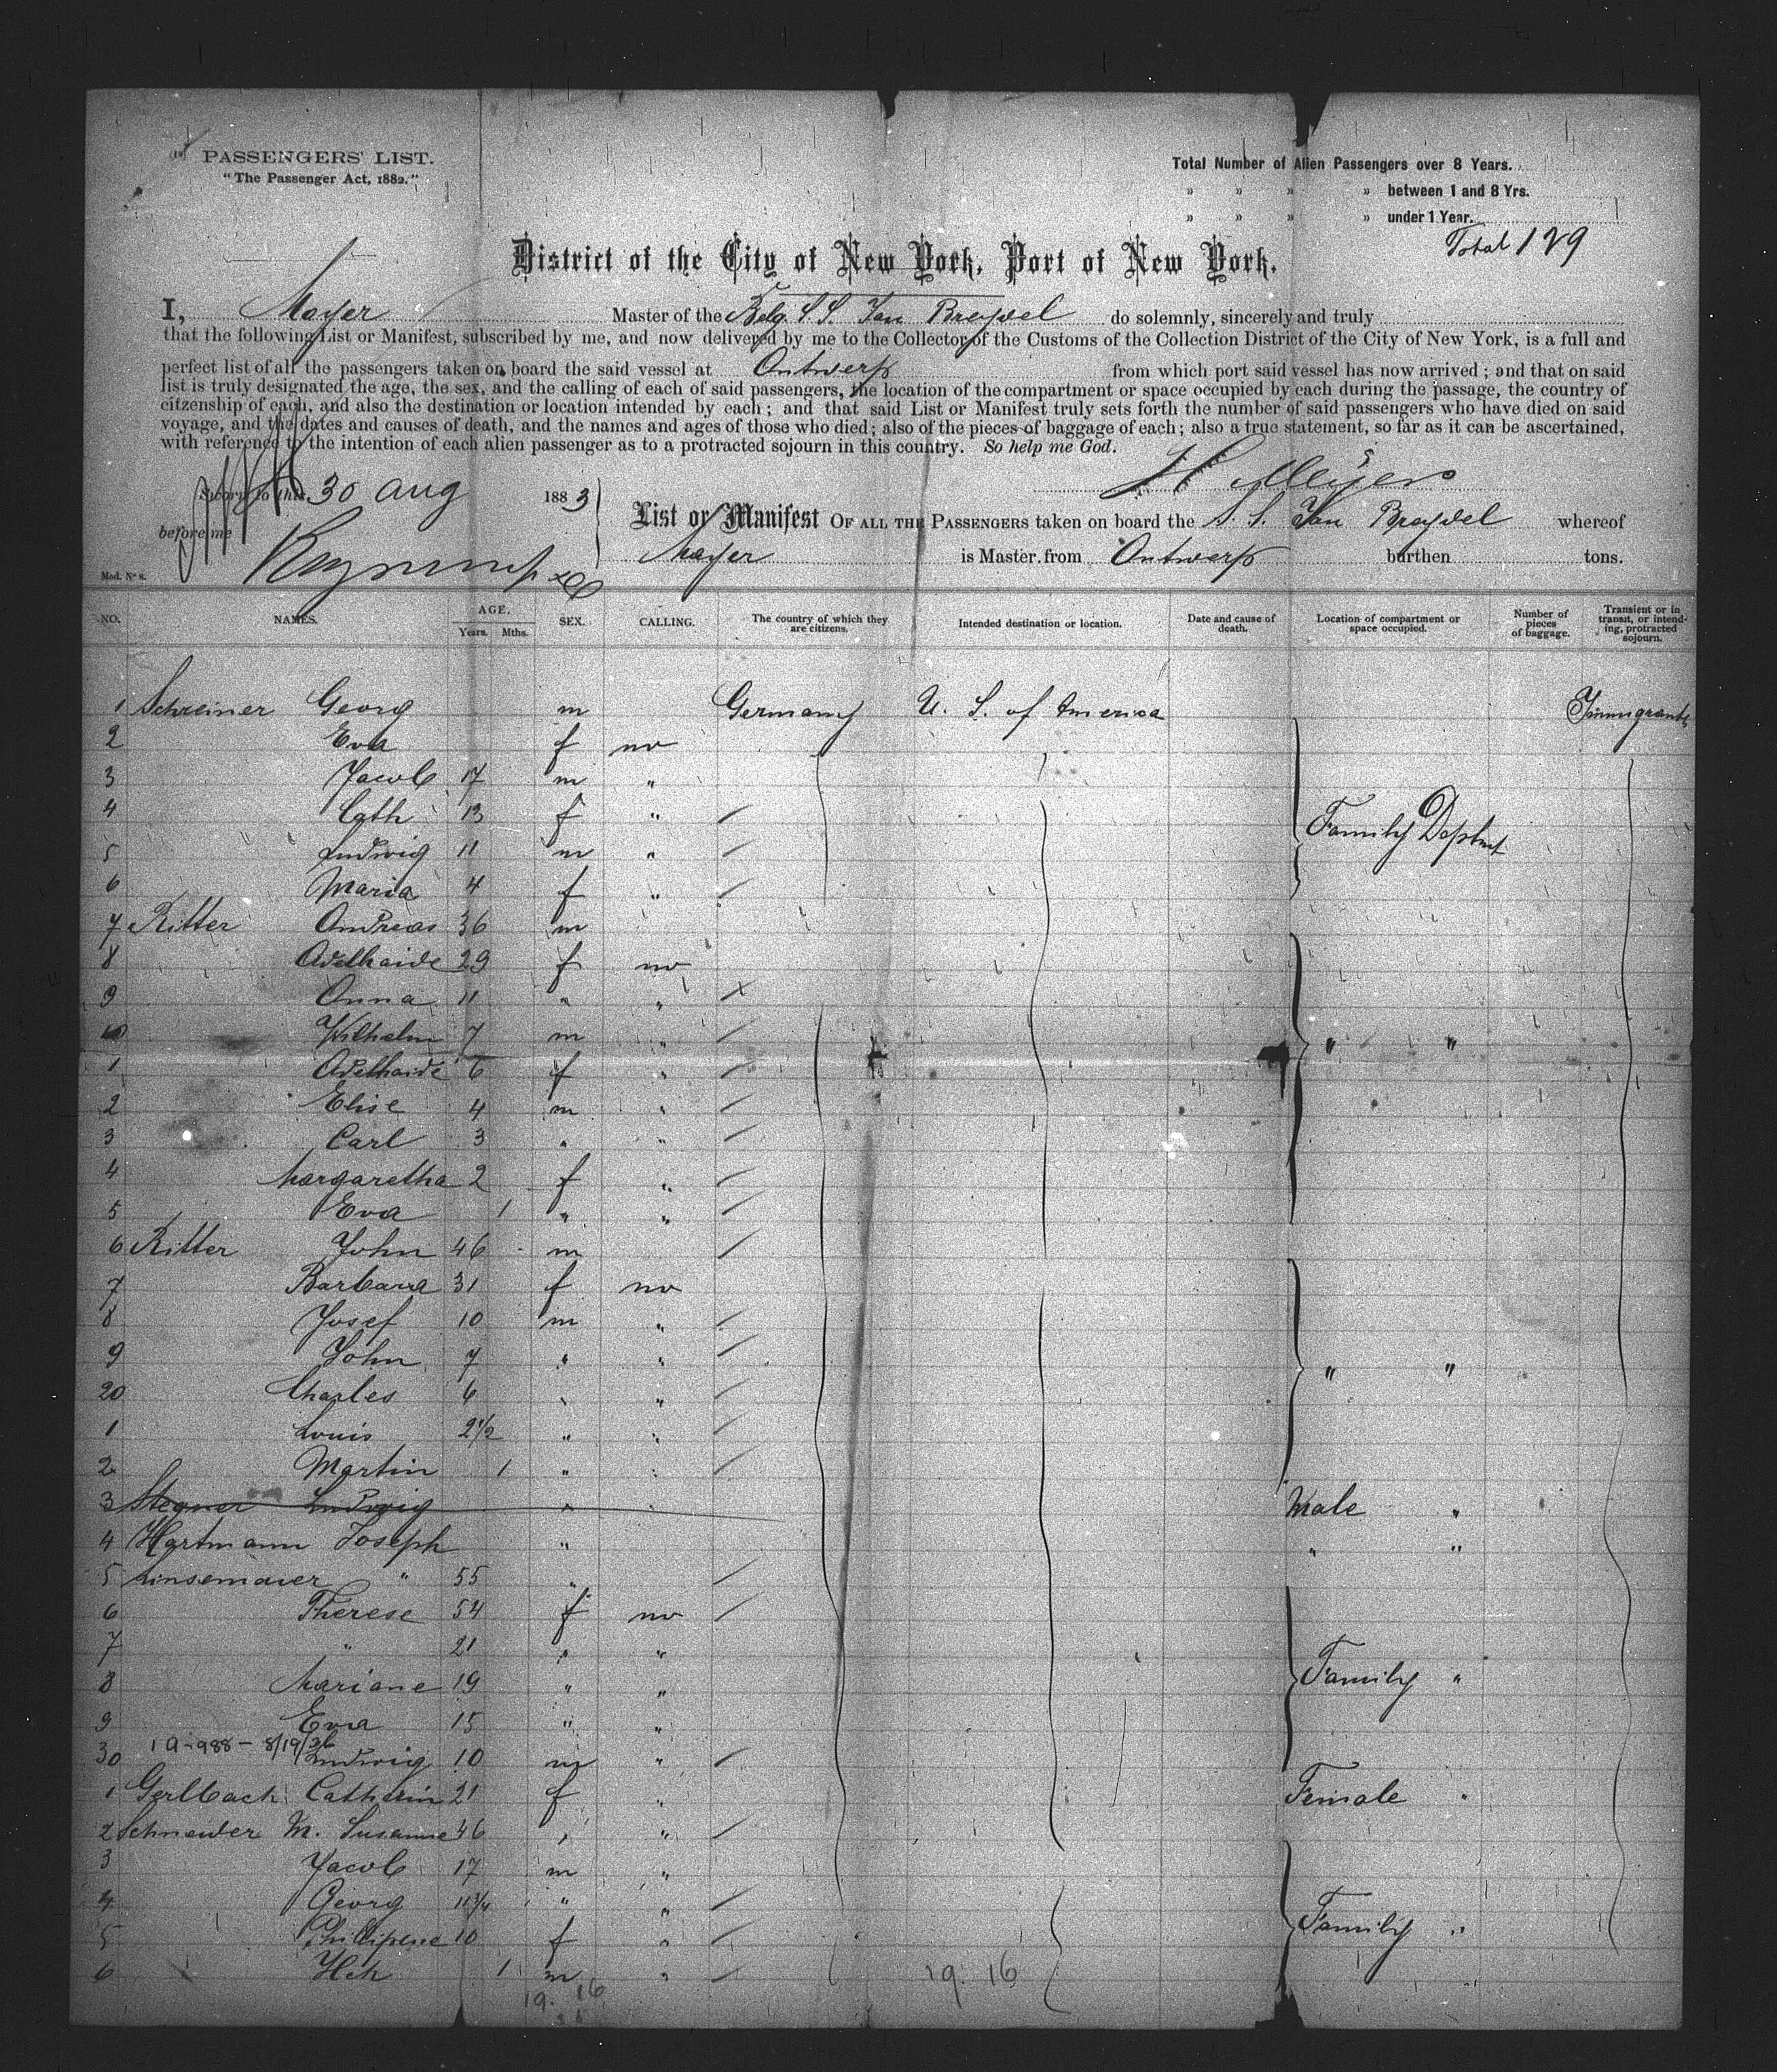 PASSENGERS' LIST.
"The Passenger Act, 1882."
Total Number of Alien Passengers over 8 Years.
" " " " between 1 and 8 Yrs.
" " " " under 1 Year.
Total 129
District of the City of New York, Port of New York.
I, Mayer Master of the Belg. S.S. Jan Breydel do solemnly, sincerely and truly
that the following List or Manifest, subscribed by me, and now delivered by me to the Collector of the Customs of the Collection District of the City of New York, is a full and
perfect list of all the passengers taken on board the said vessel at Antwerp from which port said vessel has now arrived; and that on said
list is truly designated the age, the sex, and the calling of each of said passengers, the location of the compartment or space occupied by each during the passage, the country of
citzenship of each, and also the destination or location intended by each; and that said List or Manifest truly sets forth the number of said passengers who have died on said
voyage, and the dates and causes of death, and the names and ages of those who died; also of the pieces of baggage of each; also a true statement, so far as it can be ascertained,
with reference to the intention of each alien passenger as to a protracted sojourn in this country. So help me God.
Sworn to this 30 Aug 1883
H Meyer
before me
List or Manifest OF ALL THE PASSENGERS taken on board the S. S. Jan Breydel whereof
Mayer is Master, from Antwerp burthen tons.
Mod. No 8.
NO. NAMES. AGE. Years. Mths. SEX. CALLING. The country of which they are citizens. Intended destination or location. Date and cause of death. Location of compartment or space occupied. Number of pieces of baggage. Transient or in transit, or intending, protracted sojourn.
1 Schreiner Georg m Germany U. S. of America Immigrants
2 Eva f no
3 Jacob 17 m "
4 Cath 13 f " Family Deptmt
5 Ludwig 11 m "
6 Maria 4 f "
7 Ritter Andreas 36 m
8 Adelhaide 29 f no
9 Anna 11 " "
10 Wilhelm 7 m " " "
1 Adelhaide 6 f "
2 Elise 4 m "
3 Carl 3 " "
4 Margaretha 2 f "
5 Eva 1 " "
6 Ritter John 46 m
7 Barbara 31 f no
8 Josef 10 m "
9 John 7 " " " "
20 Charles 6 " "
1 Louis 2 1/2 " "
2 Martin 1 " "
3 Stegner Ludwig " " Male "
4 Hartmann Joseph " " "
5 Linsemaier " 55 "
6 Therese 54 f no
7 " 21 " "
8 Mariane 19 " " Family "
9 Eva 15 " "
1 a-988 - 8/19/36
30 Ludwig 10 m "
1 Gerlbach Catharin 21 f " Female "
2 Schneider M. Susanne 46 " "
3 Jacob 17 m "
4 Georg 11 3/4 " "
5 Philipene 10 f " Family "
6 Hch 1 m "
19. 16
19. 16